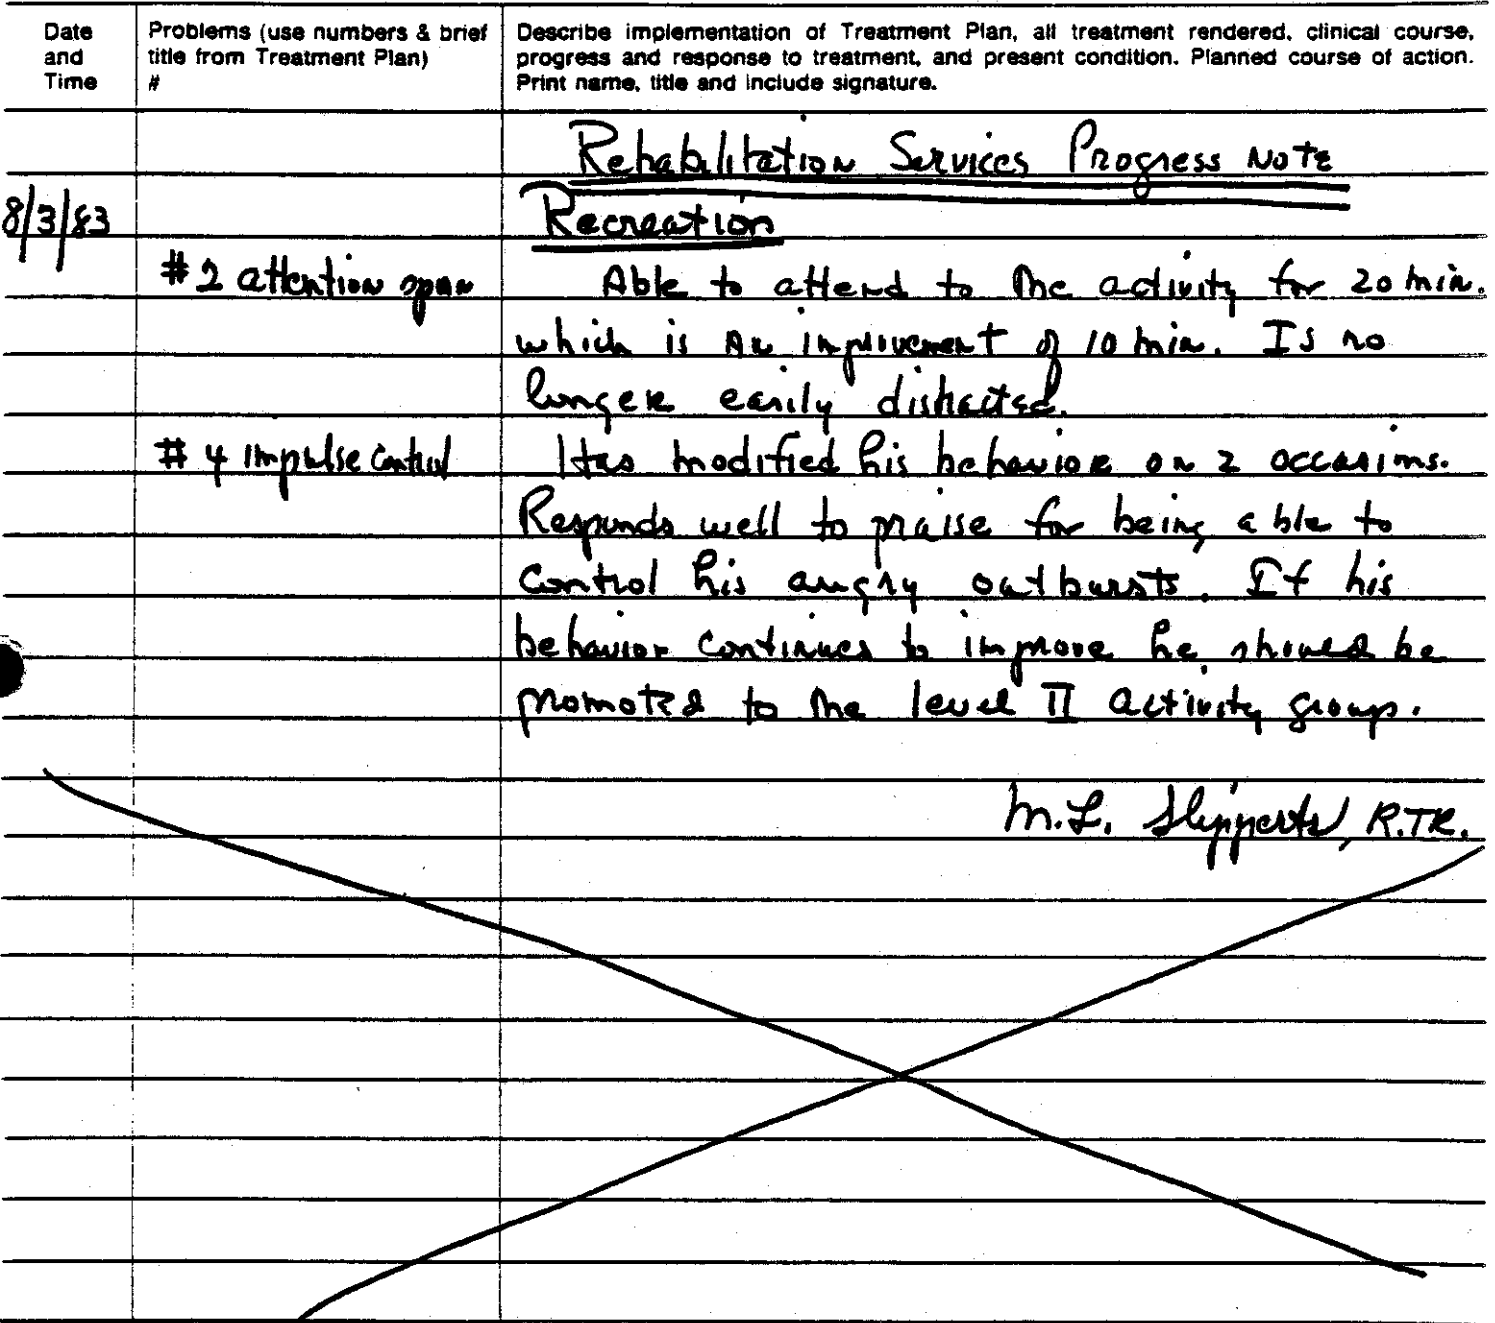 Date and Time
Problems (use numbers & brief title from Treatment Plan) #
Describe implementation of Treatment Plan, all treatment rendered, clinical course, progress and response to treatment, and present condition. Planned course of action. Print name, title and include signature.
Rehabilitation Services Progress Note
8/3/83 Recreation
#2 attention span Able to attend to the activity for 20 min.
which is an improvement of 10 min. Is no
longer easily distracted.
#4 impulse control Has modified his behavior on 2 occasions.
Responds well to praise for being able to
control his angry outbursts. If his
behavior continues to improve he should be
promoted to the level II activity group.
M.L. R.TR.